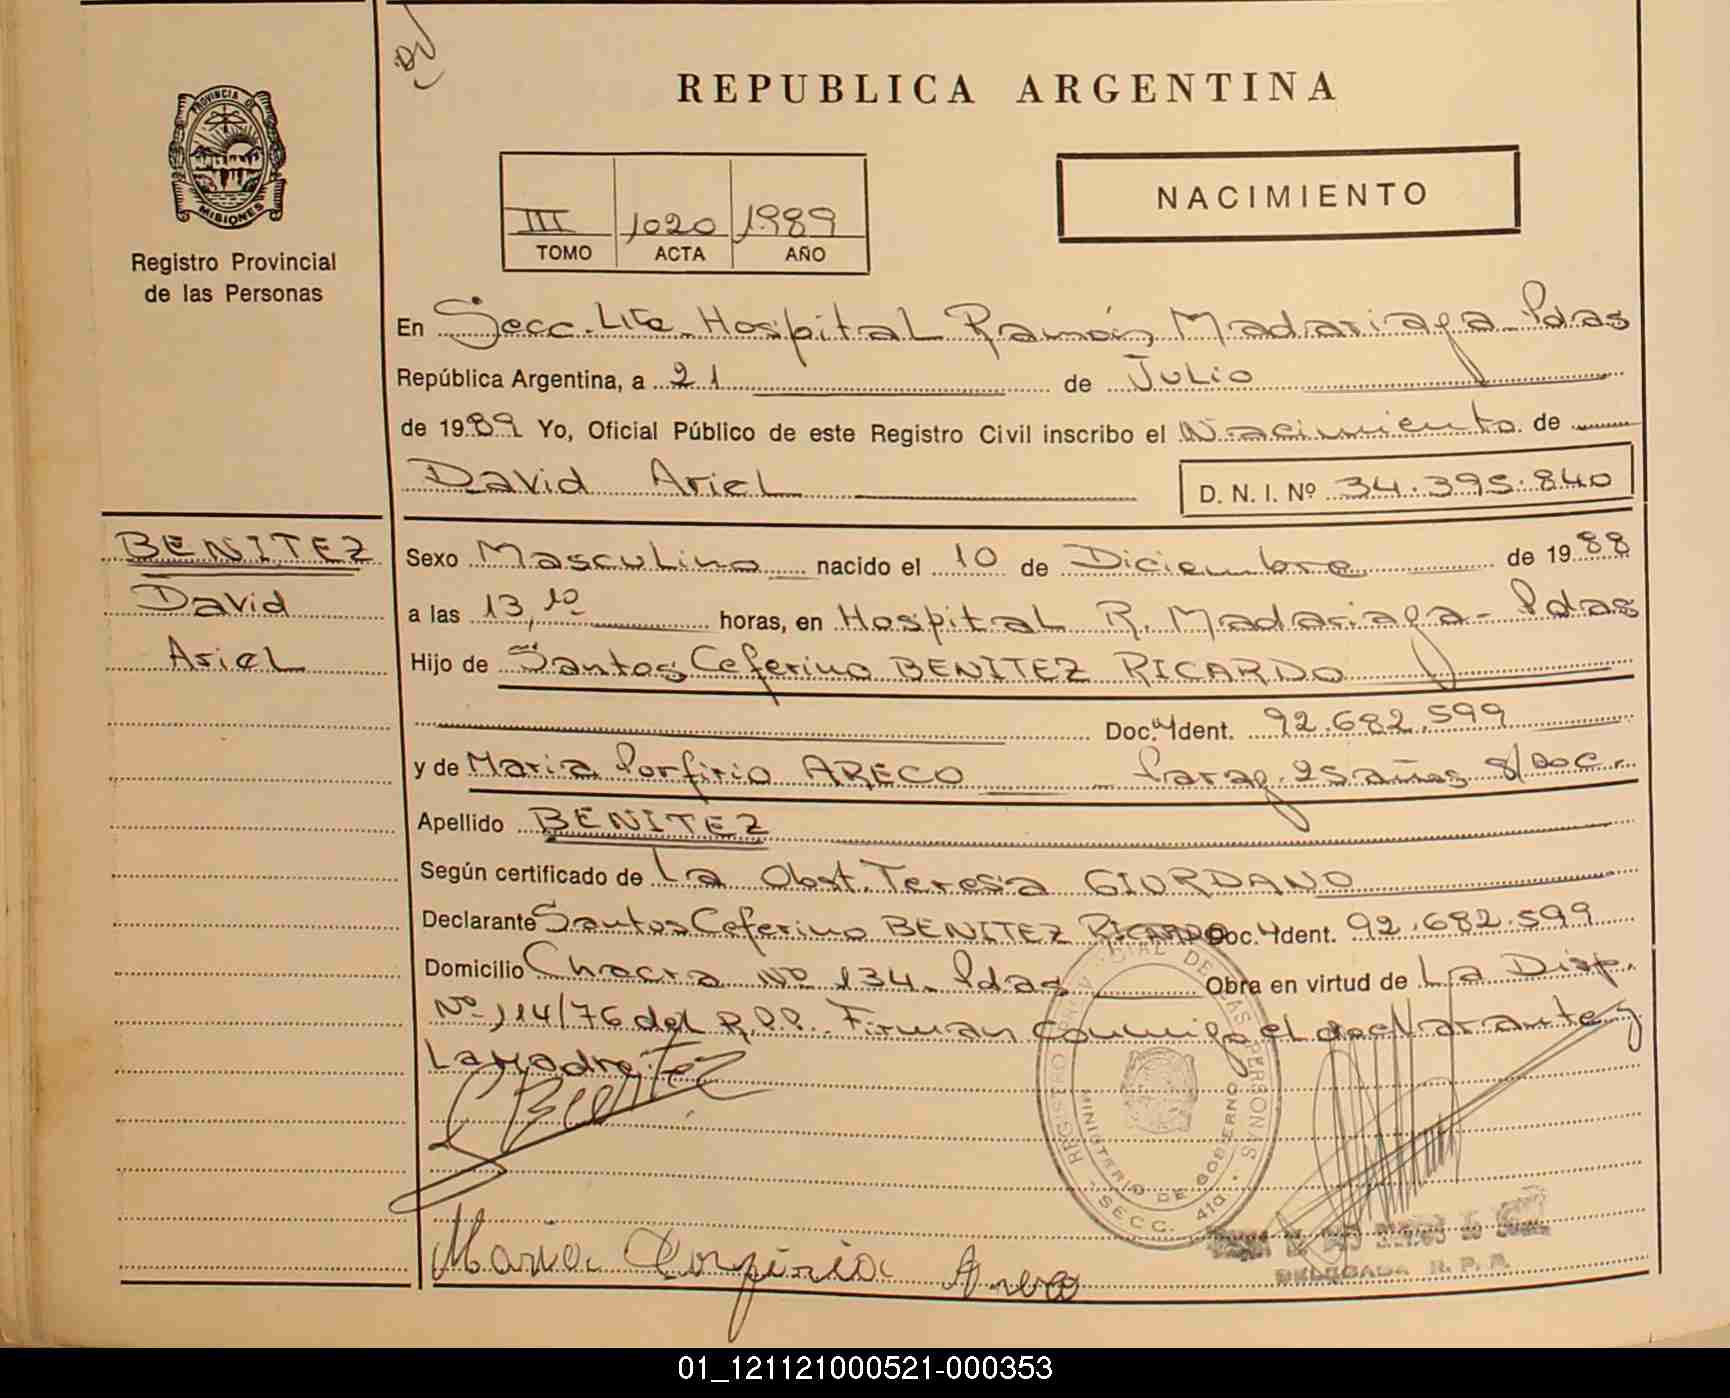 REPUBLICA ARGENTINA
PROVINCIA DE
MISIONES
Registro Provincial
de las Personas
III 1020 1989
TOMO ACTA AÑO
NACIMIENTO
En Secc. 4ta. Hospital Ramón Madariaga Pdas
República Argentina, a 21 de Julio
de 1989 Yo, Oficial Público de este Registro Civil inscribo el Nacimiento de
David Ariel D. N. I. Nº 34.395.840
BENITEZ
David
Ariel
Sexo Masculino nacido el 10 de Diciembre de 1988
a las 13,10 horas, en Hospital R. Madariaga - Pdas
Hijo de Santos Ceferino BENITEZ RICARDO
Doc. Ident. 92.682.599
y de Maria Porfirio ARECO Parag. 25 años s/doc.
Apellido BENITEZ
Según certificado de La Obst. Teresa GIORDANO
Declarante Santos Ceferino BENITEZ RICARDO Doc. Ident. 92.682.599
Domicilio Chacra Nº 134. Pdas Obra en virtud de La Disp.
Nº 114/76 del R.P.P. Firman conmigo el declarante y
La Madre
Benitez
REGISTRO PROVINCIAL DE LAS PERSONAS
MINISTERIO DE GOBIERNO
SECC. 4ta
Maria Porfiria Areco
DELEGADA R. P. P.
01_121121000521-000353